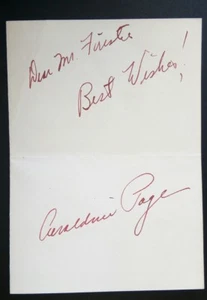 Dear Mr.
Best Wishes!
Geraldine Page